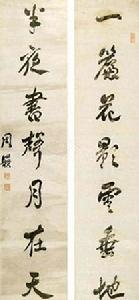 一簾花影雲垂地
半夜書聲月在天